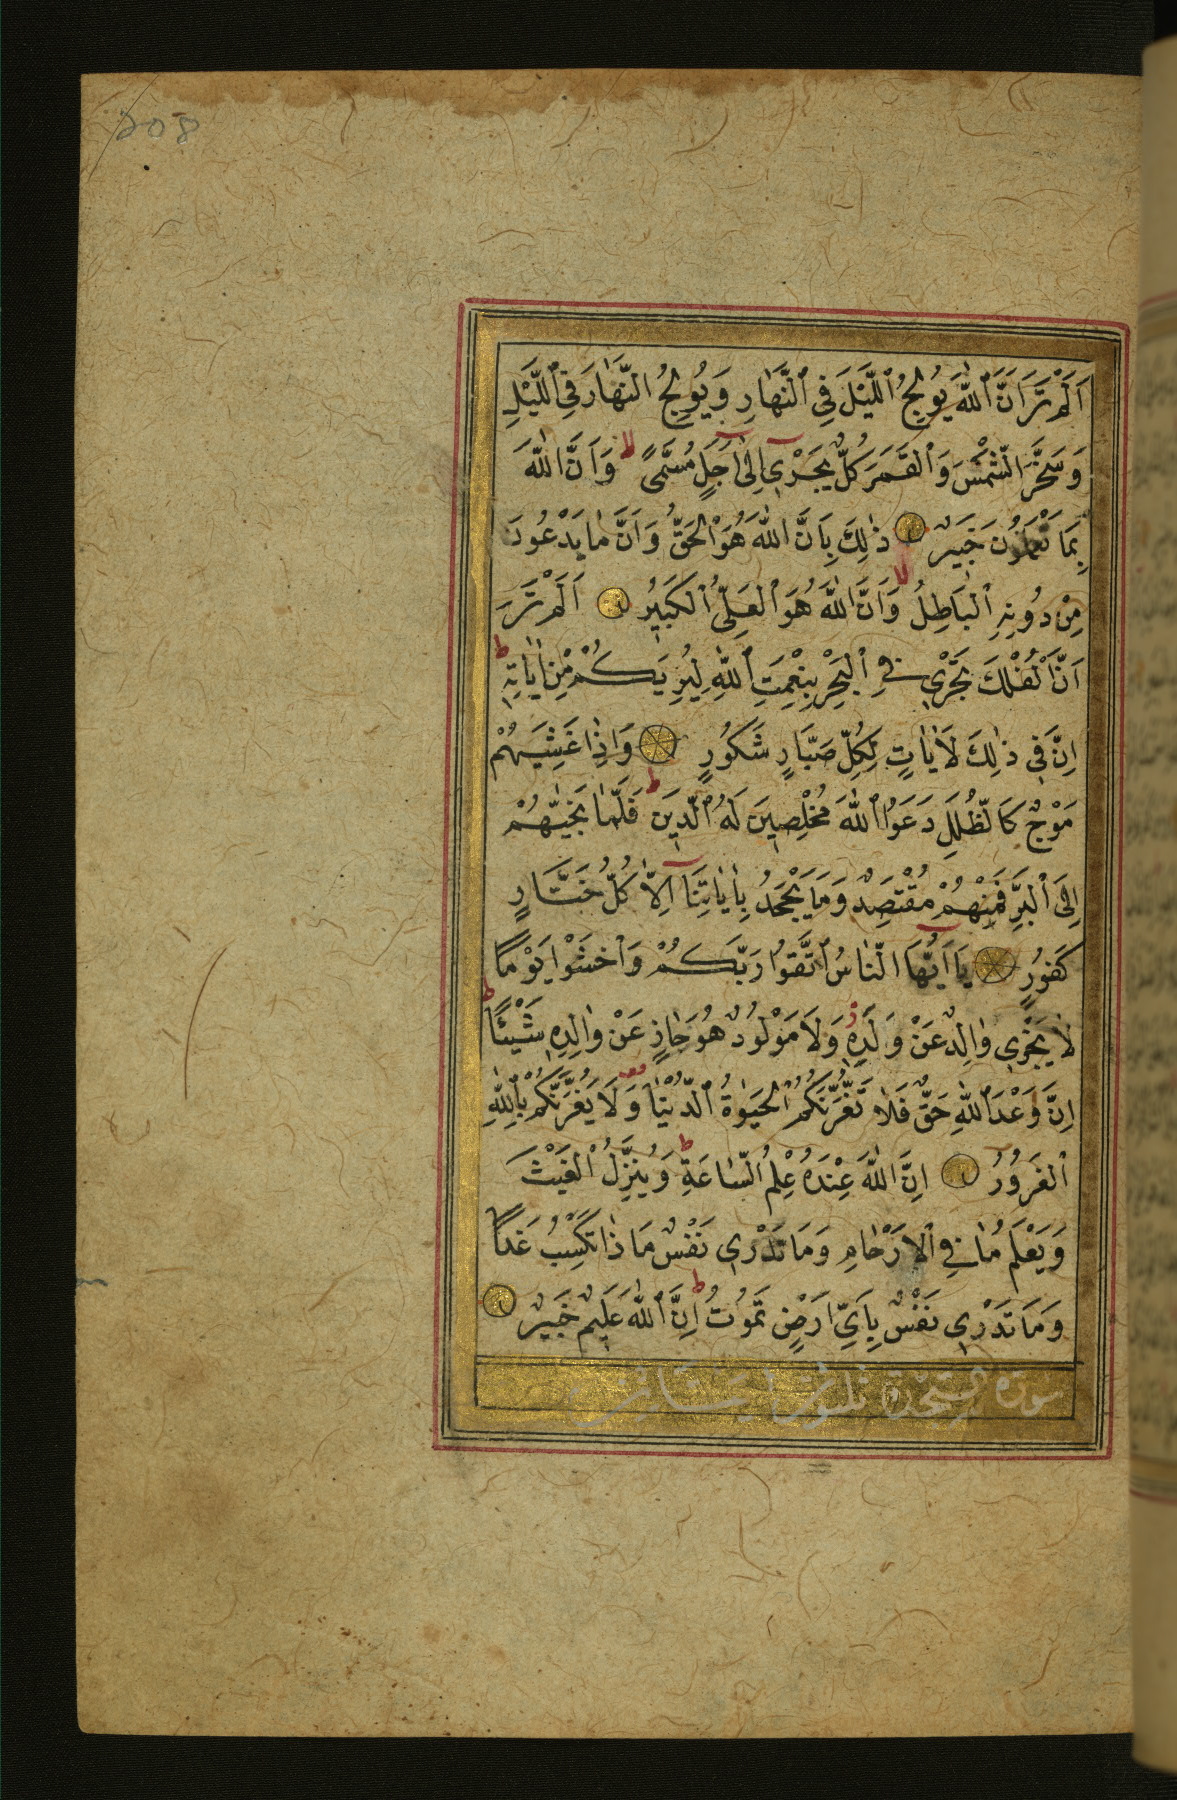 208
اَلَمْ تَرَ اَنَّ ٱللّٰهَ يُولِجُ ٱللَّيْلَ فِي ٱلنَّهَارِ وَيُولِجُ النَّهَارَ فِي ٱللَّيْلِ
وَسَخَّرَ الشَّمْسَ وَٱلْقَمَرَ كُلٌّ يَجْرِي اِلٰى اَجَلٍ مُسَمًّى لا وَاَنَّ اللّٰهَ
بِمَا تَعْمَلُونَ خَبِيرٌ ذٰلِكَ بِاَنَّ اللّٰهَ هُوَ الْحَقُّ وَاَنَّ مَا يَدْعُونَ
مِنْ دُونِهِ ٱلْبَاطِلُ لا وَاَنَّ اللّٰهَ هُوَ ٱلْعَلِيُّ ٱلْكَبِيرُ اَلَمْ تَرَ
اَنَّ ٱلْفُلْكَ تَجْرِي فِي ٱلْبَحْرِ بِنِعْمَتِ ٱللّٰهِ لِيُرِيَكُمْ مِنْ اٰيَاتِهِ ط
اِنَّ فِي ذٰلِكَ لَاٰيَاتٍ لِكُلِّ صَبَّارٍ شَكُورٍ وَاِذَا غَشِيَهُمْ
مَوْجٌ كَالظُّلَلِ دَعَوُا ٱللّٰهَ مُخْلِصِينَ لَهُ ٱلدِّينَ ط فَلَمَّا نَجّٰيهُمْ
اِلَى ٱلْبَرِّ فَمِنْهُمْ مُقْتَصِدٌ وَمَا يَجْحَدُ بِاٰيَاتِنَا اِلَّا كُلُّ خَتَّارٍ
كَفُورٍ يَا اَيُّهَا النَّاسُ ٱتَّقُوا رَبَّكُمْ وَٱخْشَوْا يَوْمًا
لَا يَجْزِي وَالِدٌ عَنْ وَلَدِهِ ز وَلَا مَوْلُودٌ هُوَ جَازٍ عَنْ وَالِدِهِ شَيْئًا ط
اِنَّ وَعْدَ ٱللّٰهِ حَقٌّ فَلَا تَغُرَّنَّكُمُ ٱلْحَيٰوةُ ٱلدُّنْيَا وَلَا يَغُرَّنَّكُمْ بِٱللّٰهِ
ٱلْغَرُورُ اِنَّ اللّٰهَ عِنْدَهُ عِلْمُ ٱلسَّاعَةِ ط وَيُنَزِّلُ ٱلْغَيْثَ
وَيَعْلَمُ مَا فِي ٱلْاَرْحَامِ وَمَا تَدْرِي نَفْسٌ مَا ذَا تَكْسِبُ غَدًا
وَمَا تَدْرِي نَفْسٌ بِاَيِّ اَرْضٍ تَمُوتُ ط اِنَّ ٱللّٰهَ عَلِيمٌ خَبِيرٌ
سورة السجدة ثلثون